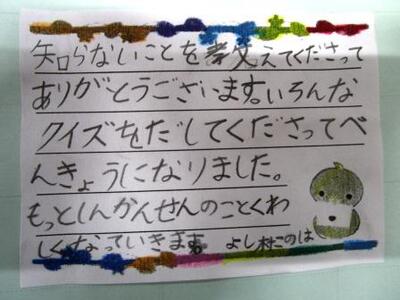 知らないことを教えてくださって
ありがとうございます。いろんな
クイズをだしてくださってべ
んきょうになりました。
もっとしんかんせんのことくわ
しくなっていきます。よし村このは